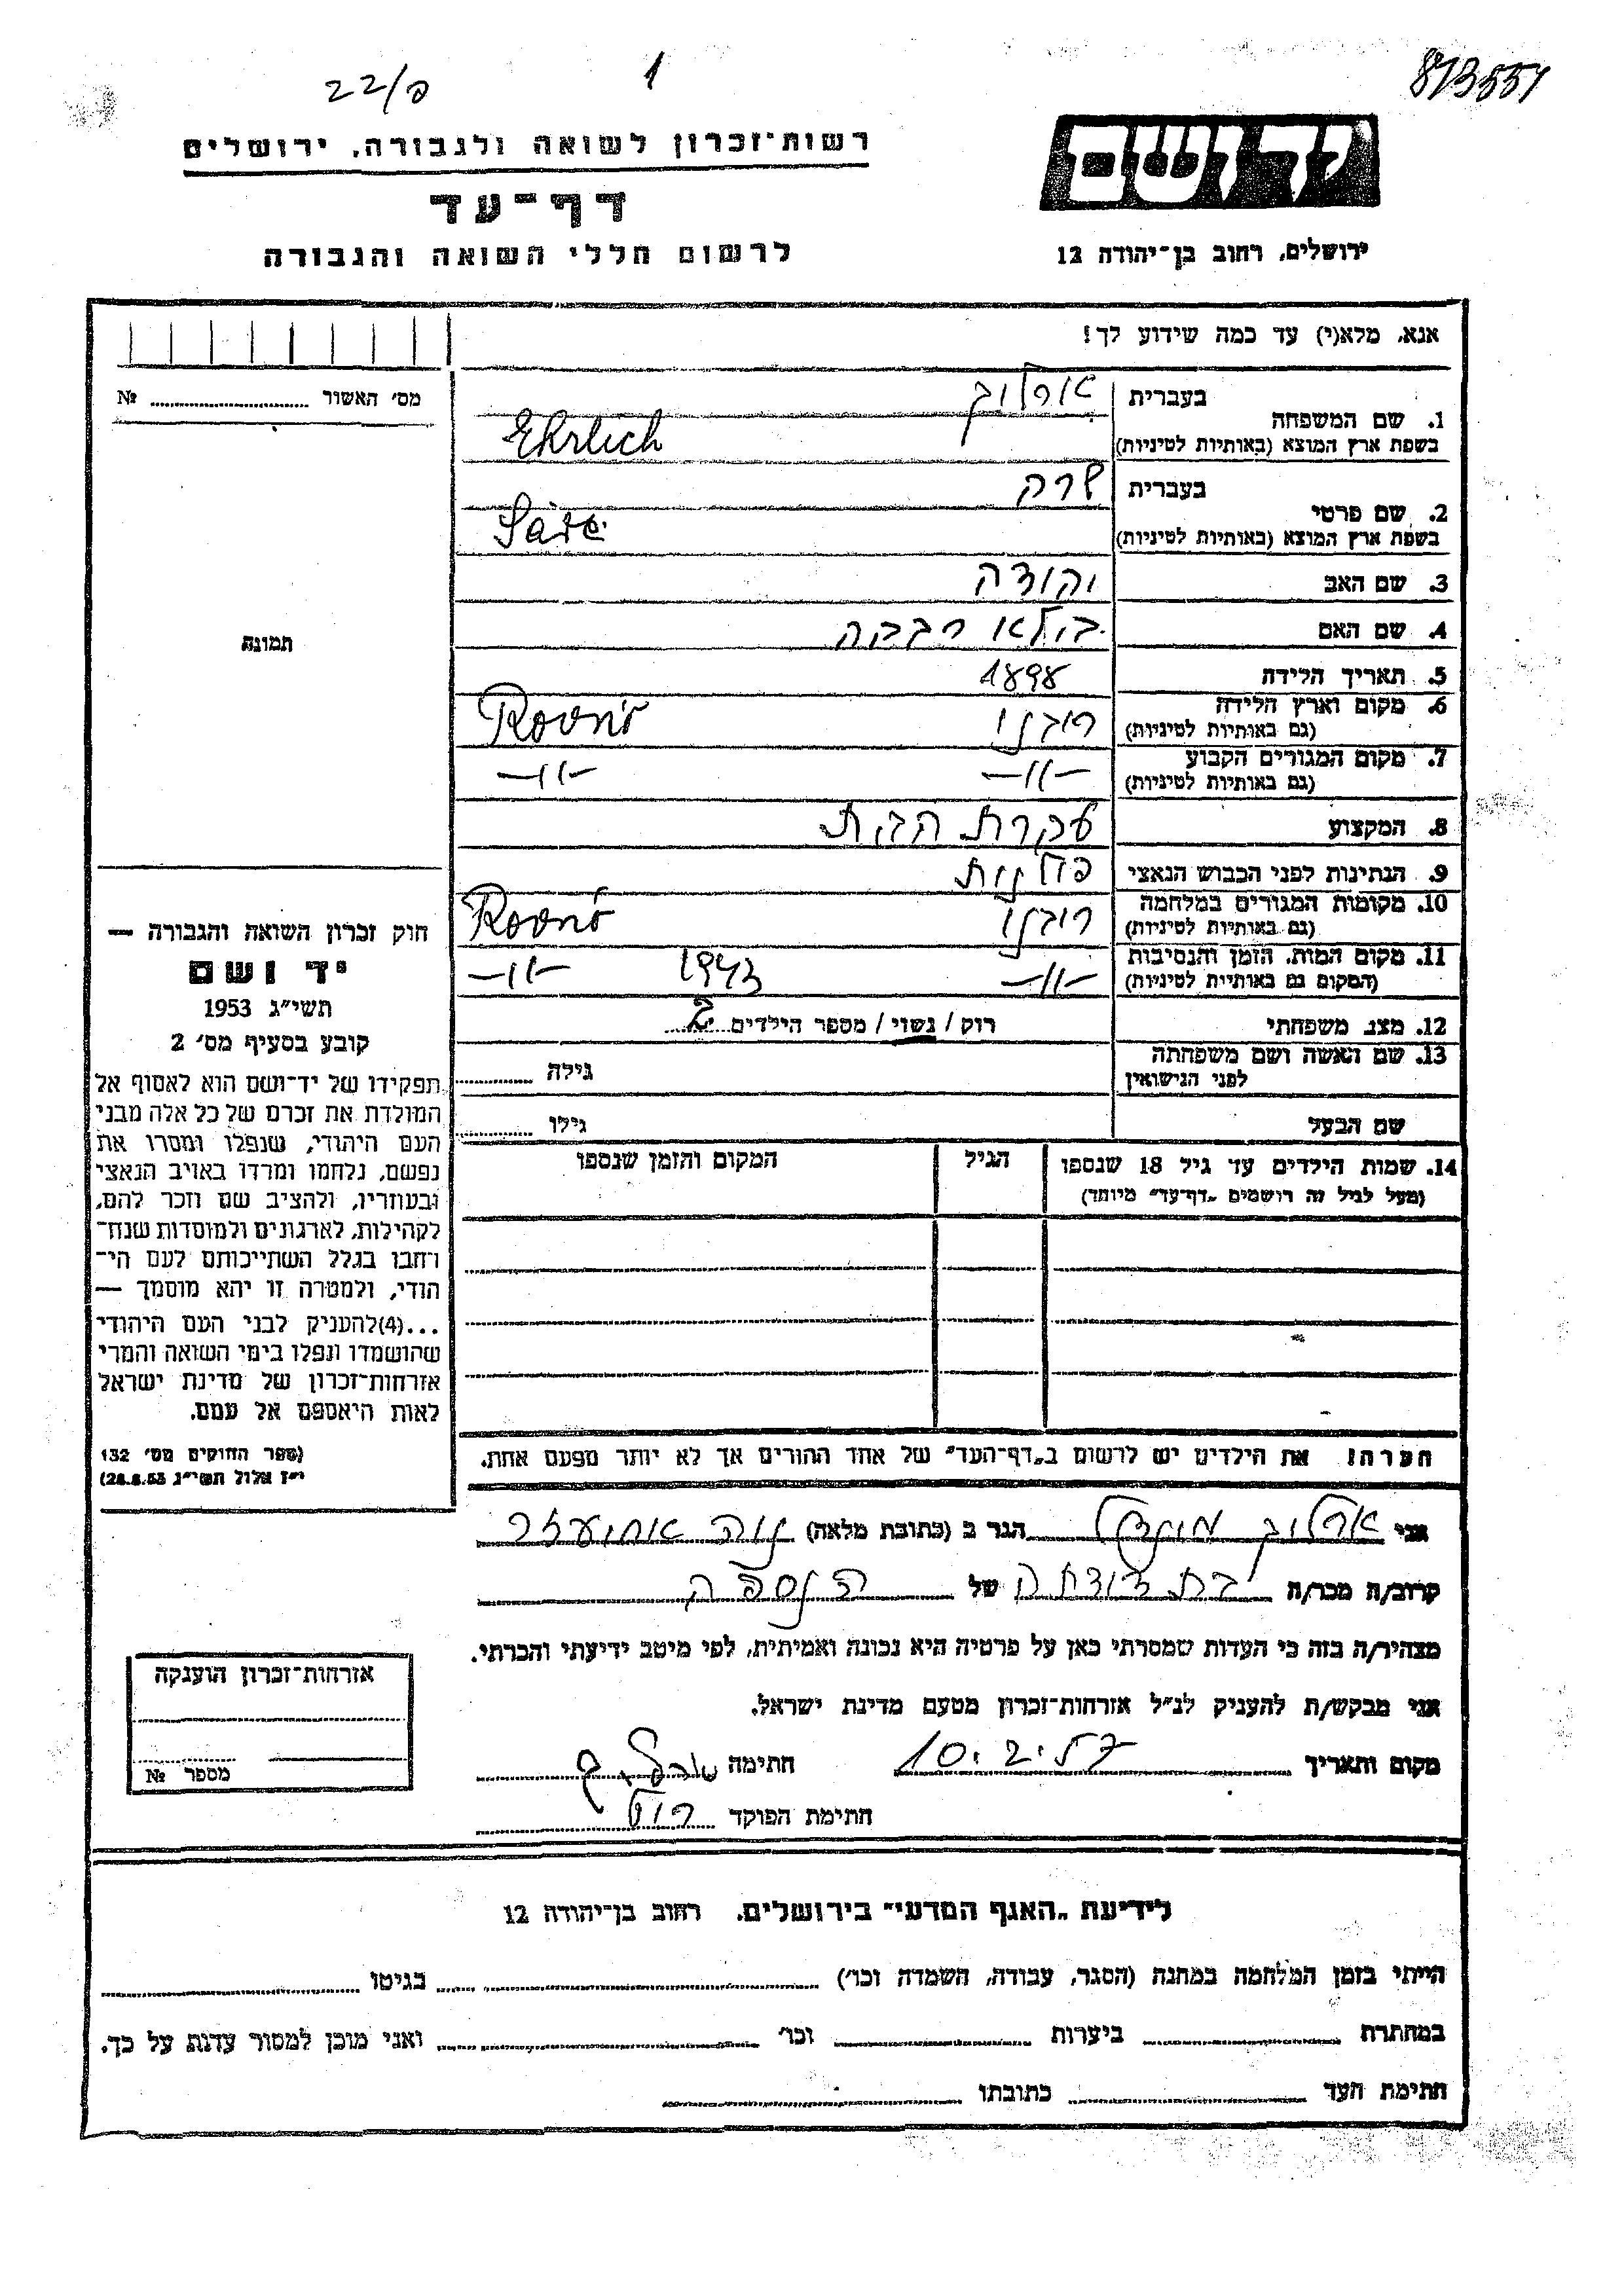 22/פ
1
873551
רשות־זכרון לשואה ולגבורה, ירושלים
דף־עד
לרשום חללי השואה והגבורה
יד ושם
ירושלים, רחוב בן־יהודה 12
אנא, מלא(י) עד כמה שידוע לך!
מס׳ האשור № ........
1. שם המשפחה
בעברית ארליך
בשפת ארץ המוצא (באותיות לטיניות) Ehrlich
2. שם פרטי
בעברית שרה
בשפת ארץ המוצא (באותיות לטיניות)
3. שם האב יהודה
4. שם האם בילא רבקה
5. תאריך הלידה 1898
6. מקום וארץ הלידה (גם באותיות לטיניות) רובנו Rovno
7. מקום המגורים הקבוע (גם באותיות לטיניות) —״— —״—
8. המקצוע עקרת הבית
9. הנתינות לפני הכבוש הנאצי פולנית
10. מקומות המגורים במלחמה (גם באותיות לטיניות) רובנו Rovno
11. מקום המות, הזמן והנסיבות (המקום גם באותיות לטיניות) —״— 1943 —״—
12. מצב משפחתי רוק / נשוי / מספר הילדים 2
13. שם האשה ושם משפחתה לפני הנישואין גילה ........
שם הבעל גילו ........
14. שמות הילדים עד גיל 18 שנספו
(מעל לגיל זה רושמים „דף־עד״ מיוחד)
הגיל
המקום והזמן שנספו
הערה! את הילדים יש לרשום ב„דף־העד״ של אחד ההורים אך לא יותר מפעם אחת.
תמונה
חוק זכרון השואה והגבורה —
יד ושם
תשי״ג 1953
קובע בסעיף מס׳ 2
תפקידו של יד־ושם הוא לאסוף אל
המולדת את זכרם של כל אלה מבני
העם היהודי, שנפלו ומסרו את
נפשם, נלחמו ומרדו באויב הנאצי
ובעוזריו, ולהציב שם וזכר להם,
לקהילות, לארגונים ולמוסדות שנח־
רחבו בגלל השתייכותם לעם הי־
הודי, ולמטרה זו יהא מוסמך —
...(4)להעניק לבני העם היהודי
שהושמדו ונפלו בימי השואה והמרי
אזרחות־זכרון של מדינת ישראל
לאות היאספם אל עמם.
(ספר החוקים מס׳ 132
י״ז אלול תשי״ג 28.8.53)
אני ארליך מנדל הגר ב (כתובת מלאה) נוה אחיעזר
קרוב/ה מכר/ה בת דודתה של הנספה
מצהיר/ה בזה כי העדות שמסרתי כאן על פרטיה היא נכונה ואמיתית, לפי מיטב ידיעתי והכרתי.
אני מבקש/ת להעניק לנ״ל אזרחות־זכרון מטעם מדינת ישראל.
מקום ותאריך 10.2.57 חתימה
חתימת הפוקד
אזרחות־זכרון הוענקה
מספר №
לידיעת „האגף המדעי״ בירושלים, רחוב בן־יהודה 12
הייתי בזמן המלחמה במחנה (הסגר, עבודה, השמדה וכו׳) ........ בגיטו ........
במחתרת ........ ביערות ........ וכו׳ ........ ואני מוכן למסור עדות על כך.
חתימת העד ........ כתובתו ........